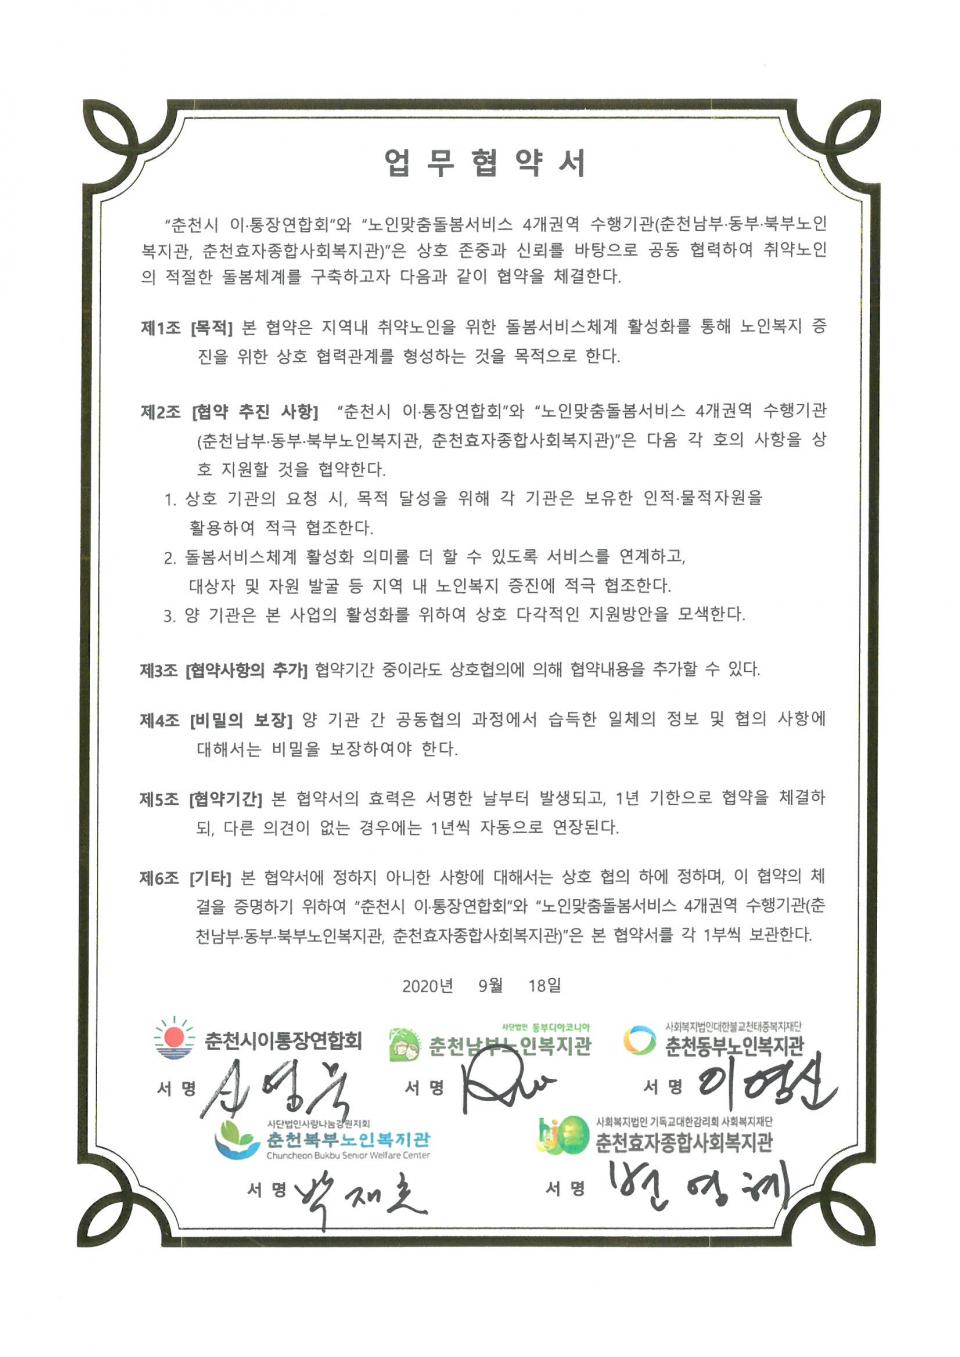 업무협약서
"춘천시 이·통장연합회"와 "노인맞춤돌봄서비스 4개권역 수행기관(춘천남부·동부·북부노인
복지관, 춘천효자종합사회복지관)"은 상호 존중과 신뢰를 바탕으로 공동 협력하여 취약노인
의 적절한 돌봄체계를 구축하고자 다음과 같이 협약을 체결한다.
제1조 [목적] 본 협약은 지역내 취약노인을 위한 돌봄서비스체계 활성화를 통해 노인복지 증
진을 위한 상호 협력관계를 형성하는 것을 목적으로 한다.
제2조 [협약 추진 사항] "춘천시 이·통장연합회"와 "노인맞춤돌봄서비스 4개권역 수행기관
(춘천남부·동부·북부노인복지관, 춘천효자종합사회복지관)"은 다음 각 호의 사항을 상
호 지원할 것을 협약한다.
1. 상호 기관의 요청 시, 목적 달성을 위해 각 기관은 보유한 인적·물적자원을
활용하여 적극 협조한다.
2. 돌봄서비스체계 활성화 의미를 더 할 수 있도록 서비스를 연계하고,
대상자 및 자원 발굴 등 지역 내 노인복지 증진에 적극 협조한다.
3. 양 기관은 본 사업의 활성화를 위하여 상호 다각적인 지원방안을 모색한다.
제3조 [협약사항의 추가] 협약기간 중이라도 상호협의에 의해 협약내용을 추가할 수 있다.
제4조 [비밀의 보장] 양 기관 간 공동협의 과정에서 습득한 일체의 정보 및 협의 사항에
대해서는 비밀을 보장하여야 한다.
제5조 [협약기간] 본 협약서의 효력은 서명한 날부터 발생되고, 1년 기한으로 협약을 체결하
되, 다른 의견이 없는 경우에는 1년씩 자동으로 연장된다.
제6조 [기타] 본 협약서에 정하지 아니한 사항에 대해서는 상호 협의 하에 정하며, 이 협약의 체
결을 증명하기 위하여 "춘천시 이·통장연합회"와 "노인맞춤돌봄서비스 4개권역 수행기관(춘
천남부·동부·북부노인복지관, 춘천효자종합사회복지관)"은 본 협약서를 각 1부씩 보관한다.
2020년 9월 18일
춘천시이통장연합회
서 명
사단법인 동부디아코니아
춘천남부노인복지관
서 명
사회복지법인대한불교천태종복지재단
춘천동부노인복지관
서 명 이영신
사단법인사랑나눔강원지회
춘천북부노인복지관
Chuncheon Bukbu Senior Welfare Center
서 명 박재호
사회복지법인 기독교대한감리회 사회복지재단
춘천효자종합사회복지관
서 명 변영혜